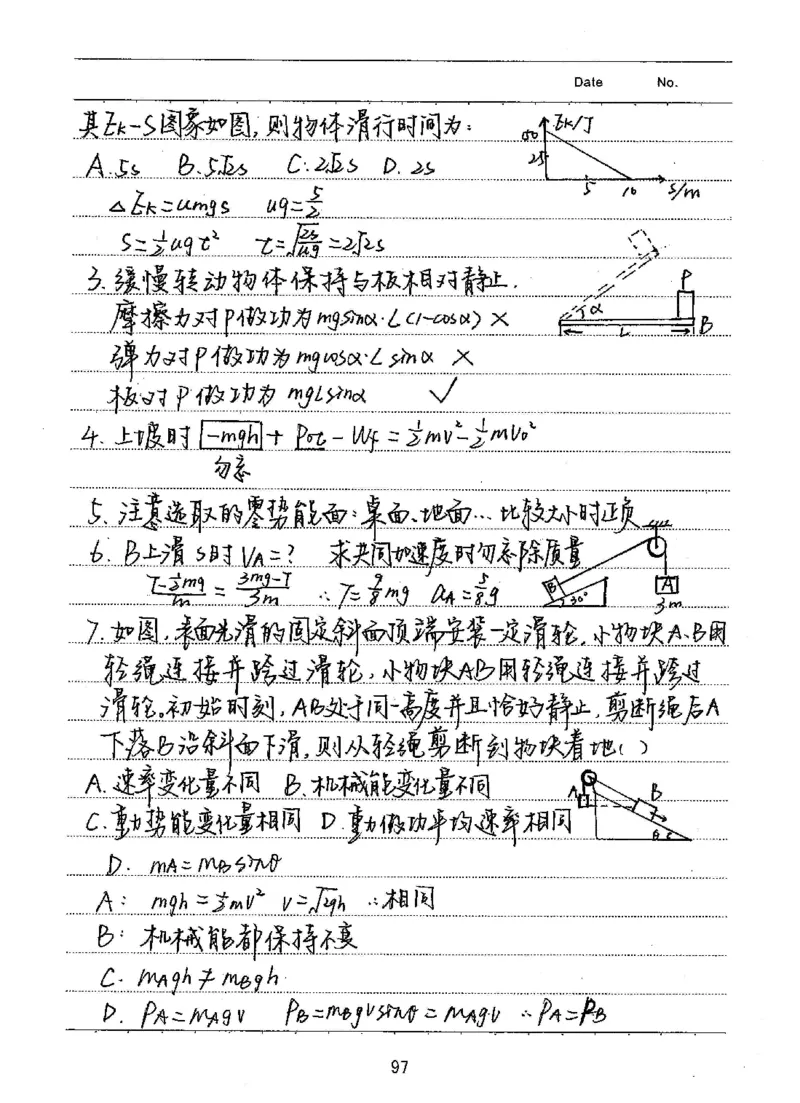 Date No.
其Ek-S图象如图,则物体滑行时间为:
A.5s B.5√2s C.2√2s D.2s
50 Ek/J
25
5 10 S/m
△Ek=umgs ug=5/2
S=½ugt² t=√(2s/ug)=2√2s
3.缓慢转动物体保持与板相对静止.
摩擦力对P做功为mgsinα·L(1-cosα) ×
弹力对P做功为mgcosα·Lsinα ×
板对P做功为mgLsinα ✓
P
α
L B
4.上坡时 -mgh + Pot - Wf = ½mv²-½mVo²
勿忘
5.注意选取的零势能面:桌面、地面…比较大小时正负
6.B上滑S时VA=? 求共同加速度时勿忘除质量
(T-½mg)/m = (3mg-T)/3m ∴T=9/8mg aA=5/8g
B 30° A
3m
7.如图,表面光滑的固定斜面顶端安装一定滑轮,小物块A、B用
轻绳连接并跨过滑轮,小物块AB用轻绳连接并跨过
滑轮。初始时刻,AB处于同一高度并且恰好静止,剪断绳后A
下落B沿斜面下滑,则从轻绳剪断到物块着地( )
A.速率变化量不同 B.机械能变化量不同
C.重力势能变化量相同 D.重力做功平均速率相同
A B
θ
D. mA=mBsinθ
A: mgh=½mv² v=√2gh ∴相同
B: 机械能都保持不变
C. mAgh≠mBgh.
D. PA=mAgv PB=mBgvsinθ=mAgv ∴PA=PB
97